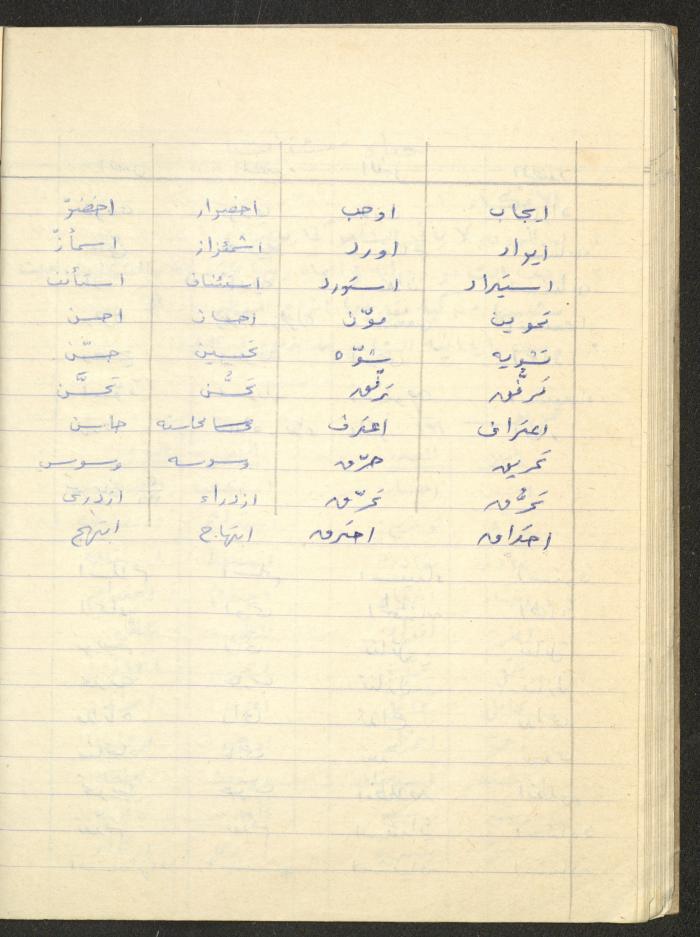 ايجاب اوجب اخضرار اخضرّ
ايراد اورد اشمئزاز اشمأزّ
استيراد استورد استئناف استأنف
تموين موّن احسان احسن
تشويه شوّه تحسين حسّن
تَرَفُّق تَرَفّق تحسُّن تحسَّن
اعتراف اعترف محاسنه حاسن
تحريق حرّق وسوسه وسوس
تحرُّق تحرّق ازدراء ازدرى
احتراق احترق ابتهاج ابتهج